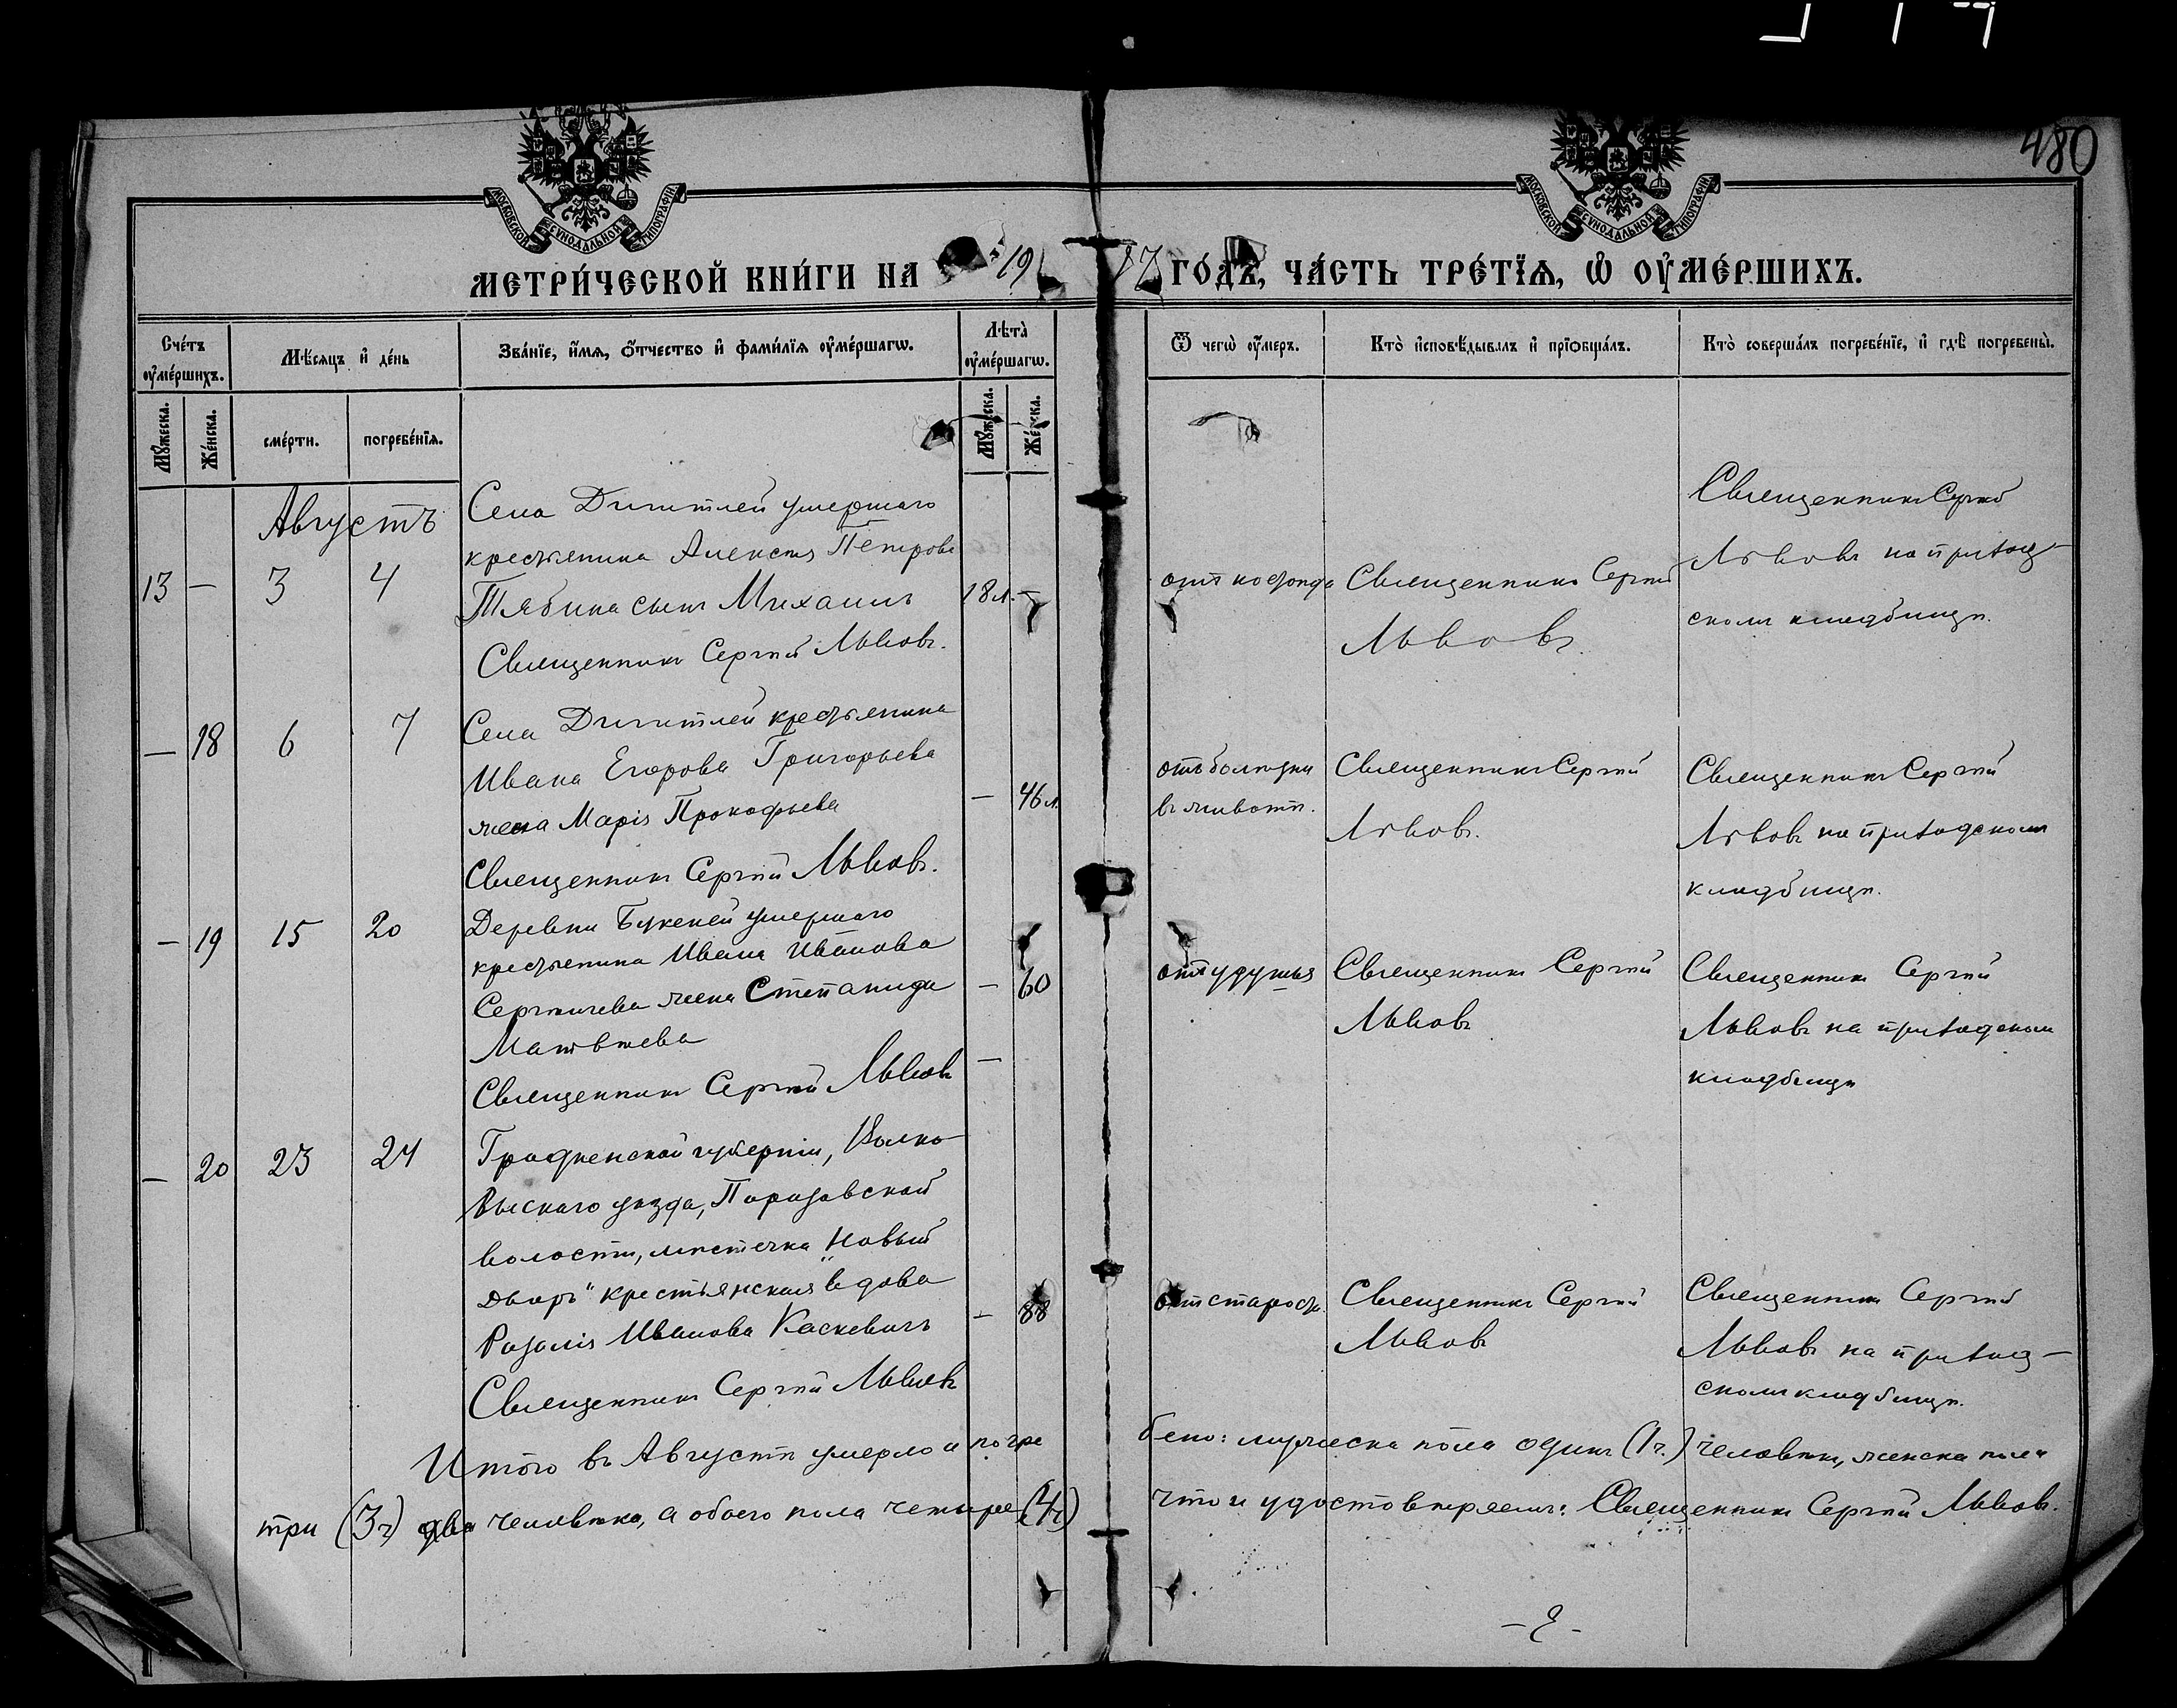 480
МОСКОВСКОЙ СѴНОДАЛЬНОЙ ТИПОГРАФІИ
МОСКОВСКОЙ СѴНОДАЛЬНОЙ ТИПОГРАФІИ
МЕТРИ́ЧЕСКОЙ КНИ́ГИ НА 19 17 ГО́ДЪ, ЧА́СТЬ ТРЕ́ТІѦ, Ѡ҆ ОУ҆МЕ́РШИХЪ.
Сче́тъ оу҆ме́ршихъ.
Мѣ́сяцъ и҆ де́нь
Зва́нїе, и҆́мѧ, ѻ҆́тчество и҆ фами́лїѧ оу҆ме́ршагѡ.
Лѣта̀ оу҆ме́ршагѡ.
Ѿ чегѡ̀ оу҆́меръ.
Кто̀ и҆сповѣ́дывалъ и҆ прїѡбща́лъ.
Кто̀ соверша́лъ погребе́нїе, и҆ гдѣ̀ погребены̀.
Мꙋ́жеска.
Же́нска.
сме́рти.
погребе́нїѧ.
Мꙋ́жеска.
Же́нска.
Августъ
13 — 3 4
Села Дигитлей умершаго
крестьянина Алексѣя Петрова
Тябина сынъ Михаилъ
Священникъ Сергій Львовъ.
18 л. —
Священникъ Сергій
Львовъ.
Священникъ Сергій
Львовъ на приход-
скомъ кладбищѣ.
— 18 6 7
Села Дигитлей крестьянина
Ивана Егорова Григорьева
жена Марія Прокофьева
Священникъ Сергій Львовъ.
— 46 л.
отъ болѣзни
въ животѣ.
Священникъ Сергій
Львовъ.
Священникъ Сергій
Львовъ на приходскомъ
кладбищѣ.
— 19 15 20
Деревни Букеней умершаго
крестьянина Ивана Иванова
Сергѣичева жена Степанида
Матвѣева
Священникъ Сергій Львовъ
— 60
—
отъ удушья
Священникъ Сергій
Львовъ
Священникъ Сергій
Львовъ на приходскомъ
кладбищѣ
— 20 23 24
Гродненской губерніи, Волко-
выскаго уѣзда, Порозовской
волости, мѣстечка „Новый
Дворъ" крестьянская вдова
Розалія Иванова Каскевичъ
Священникъ Сергій Львовъ
— 88
отъ старости
Священникъ Сергій
Львовъ
Священникъ Сергій
Львовъ на приход-
скомъ кладбищѣ.
Итого въ Августѣ умерло и погре
бено: мужеска пола одинъ (1 ч.) человѣкъ, женска пола
три (3 ч) человѣка, а обоего пола четыре (4 ч)
что и удостовѣряемъ: Священникъ Сергій Львовъ.